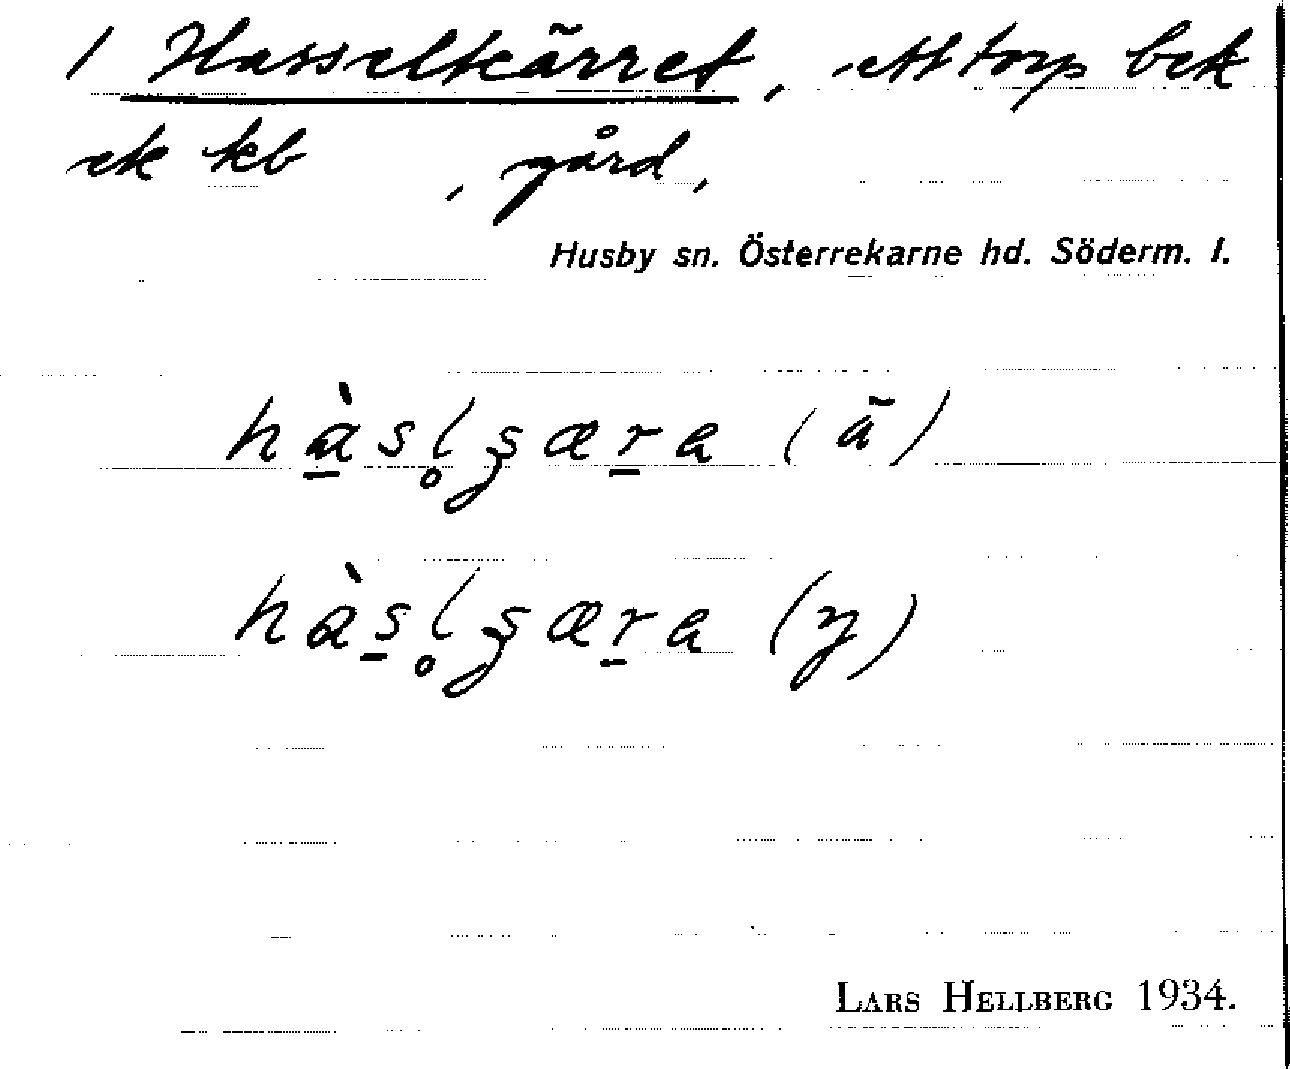 1 Hasselkärret, ett torp bek
ek kb , gård,
Husby sn. Österrekarne hd. Söderm. l.
hàsl̥ʂæra (ä)
hàsl̥ʂæra (y)
LARS HELLBERG 1934.